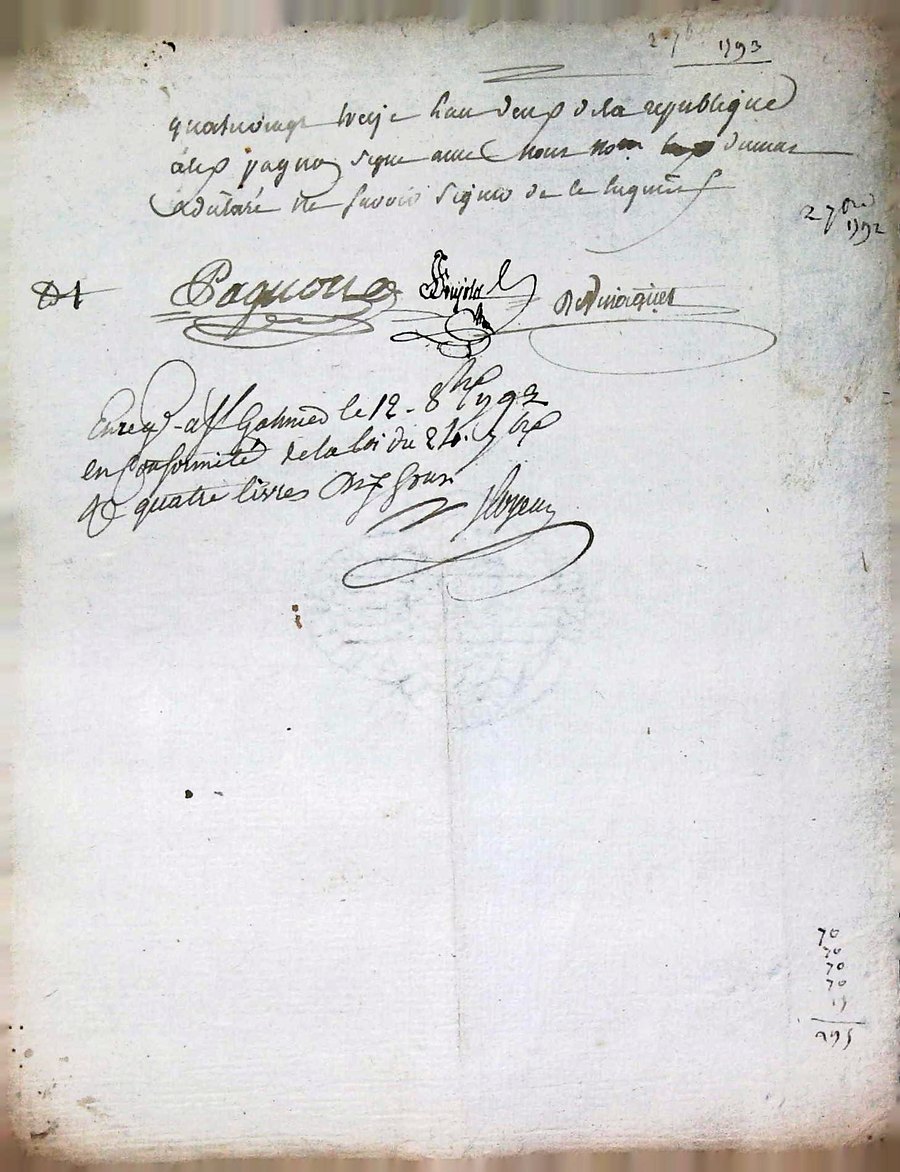 27b 1793
quatrevingt treize Lan deux de la republique
pagnon signe avec nous non dumas
a declaré ne savoir signer de ce enquis
2 7bre 1792
Pagnon
Enreg. a St Galmier le 12 8bre 1793
en Conformité de la Loi du 24. 7bre
quatre livres dix sous
70
70
70
70
15
295